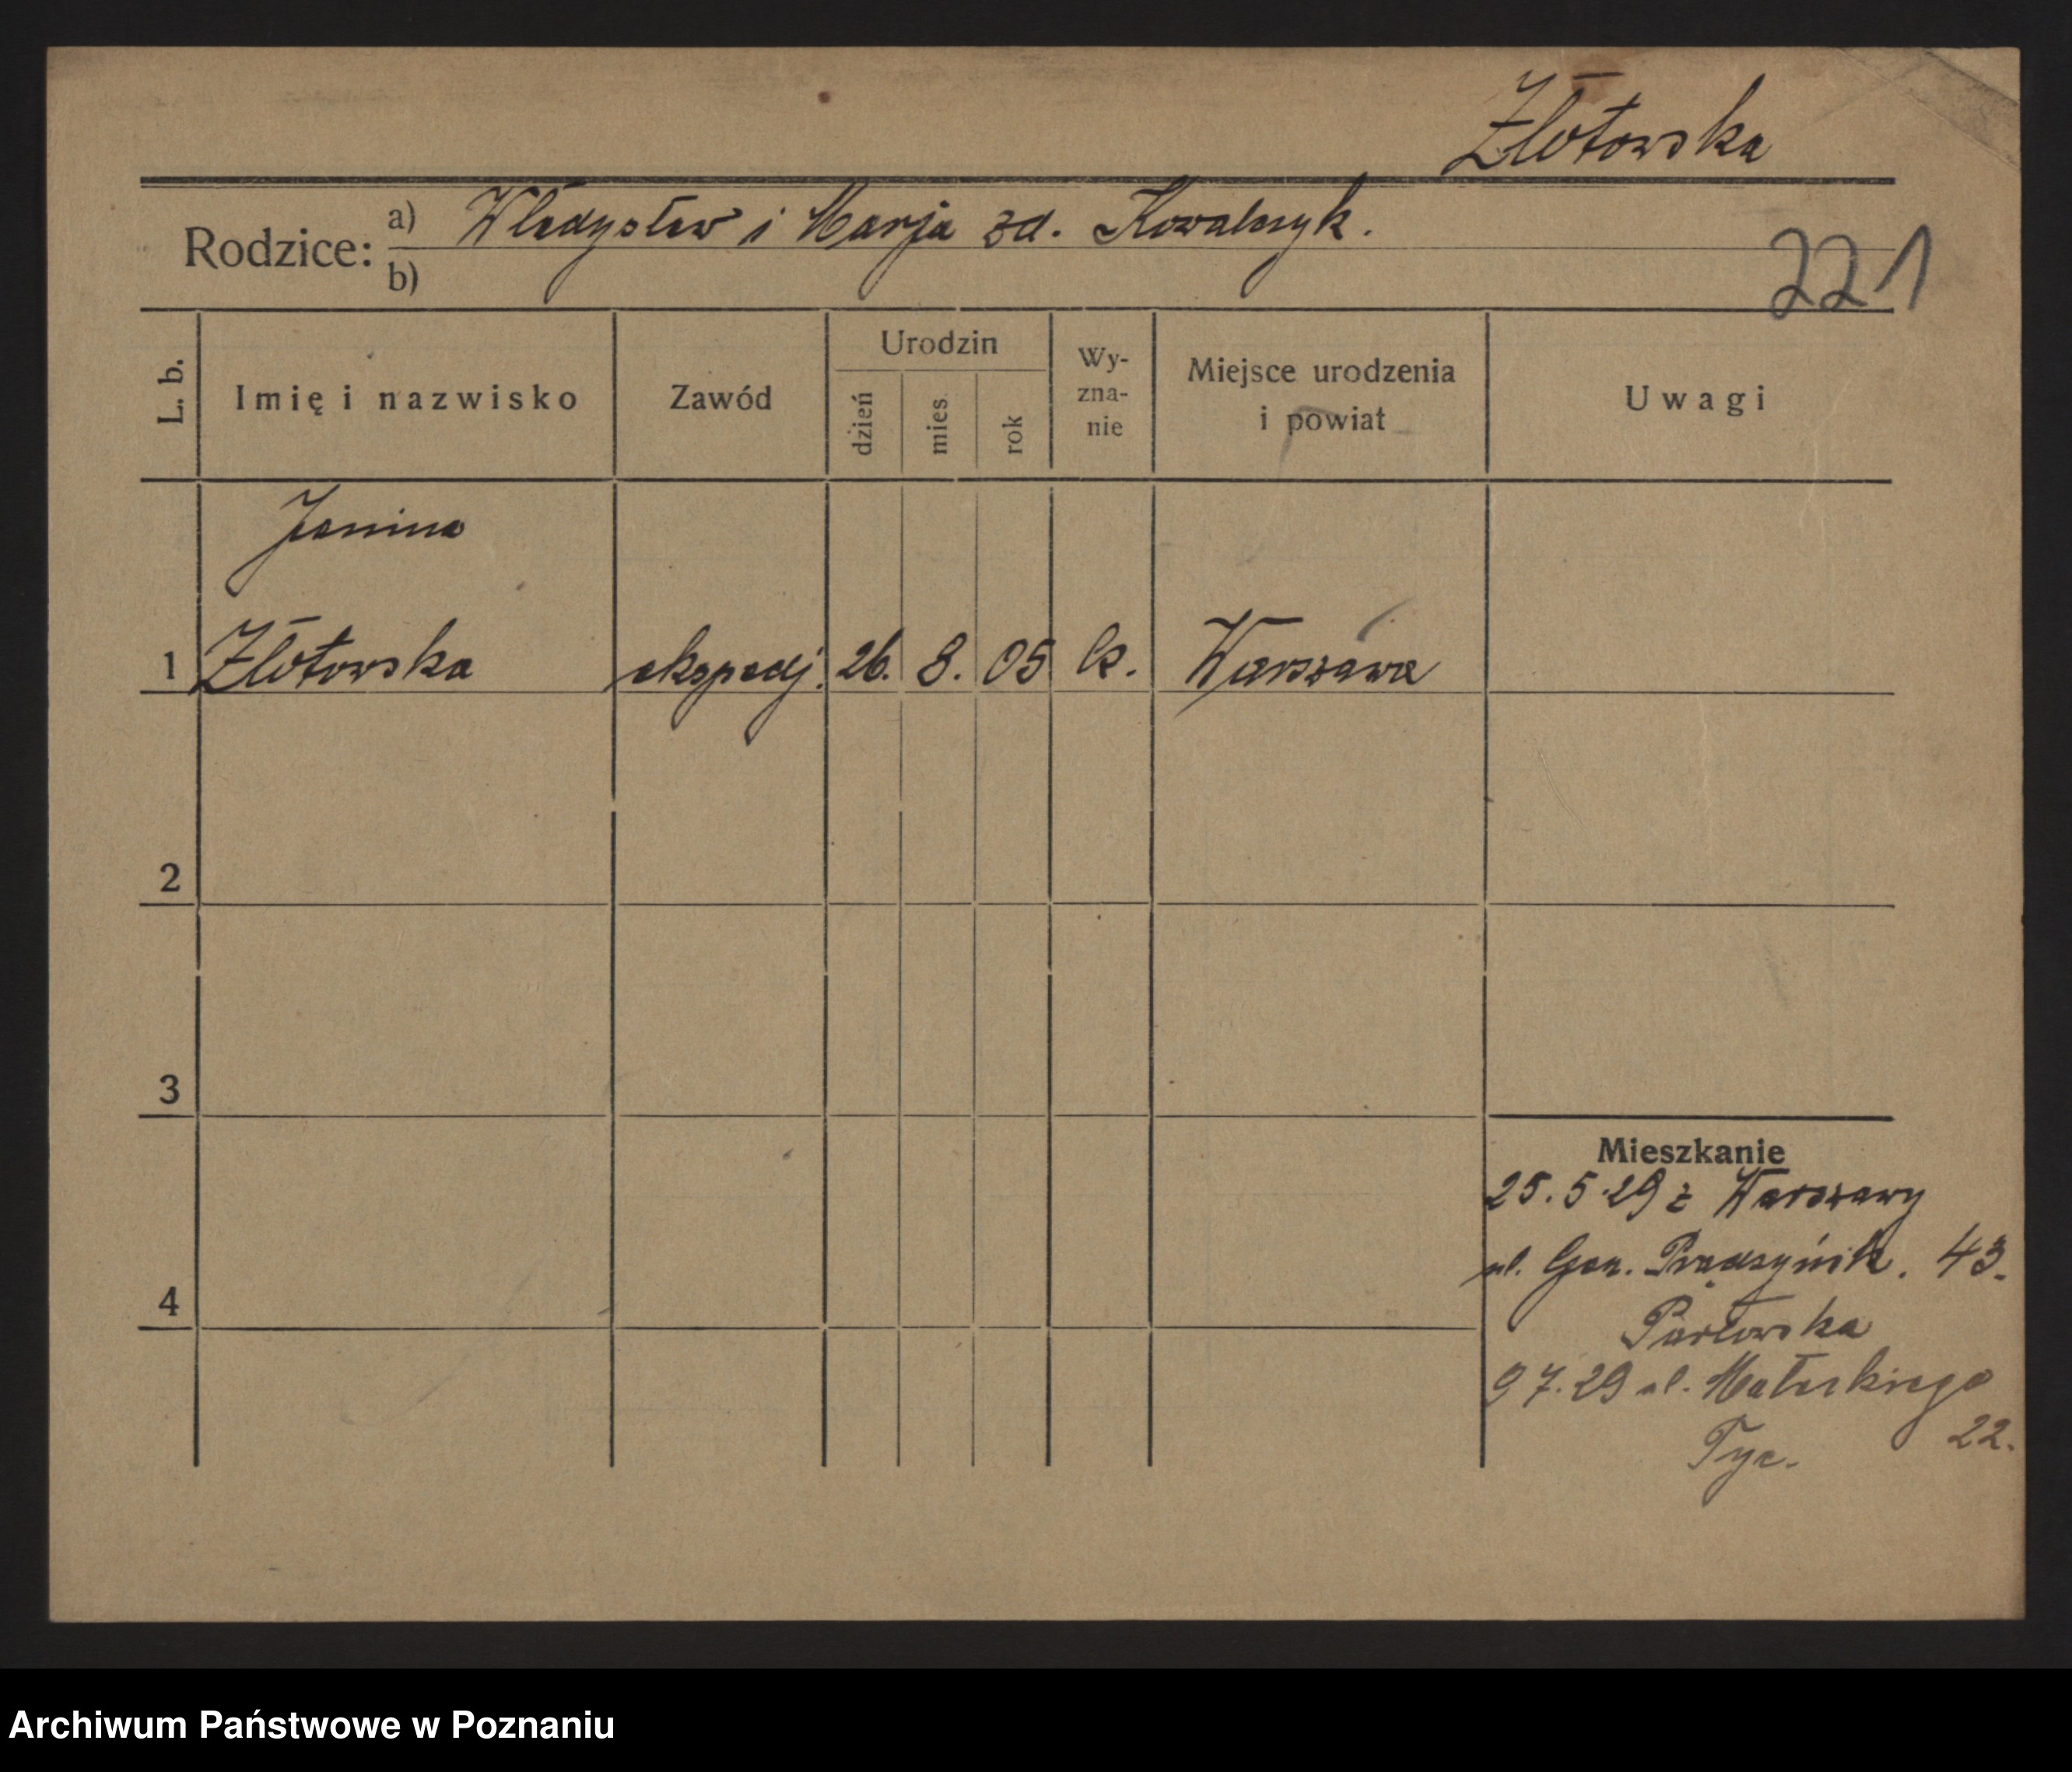 Złotowska
Rodzice: a) Władysław i Marja zd. Kowalczyk.
b)
221
L. b.
Imię i nazwisko
Zawód
Urodzin
dzień
mies.
rok
Wy-
zna-
nie
Miejsce urodzenia
i powiat
Uwagi
Janina
1 Złotowska ekspedj. 26. 8. 05 k. Warszawa
2
3
4
Mieszkanie
25.5.29 z Warszawy
ul. Gen. Prądzyńsk. 43.
9 7.29 ul. Małeckiego
22.
Tyc.
Archiwum Państwowe w Poznaniu